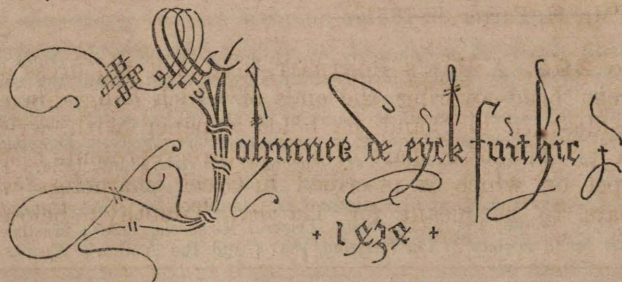 Johannes de eyck fuit hic
+ 1434 +